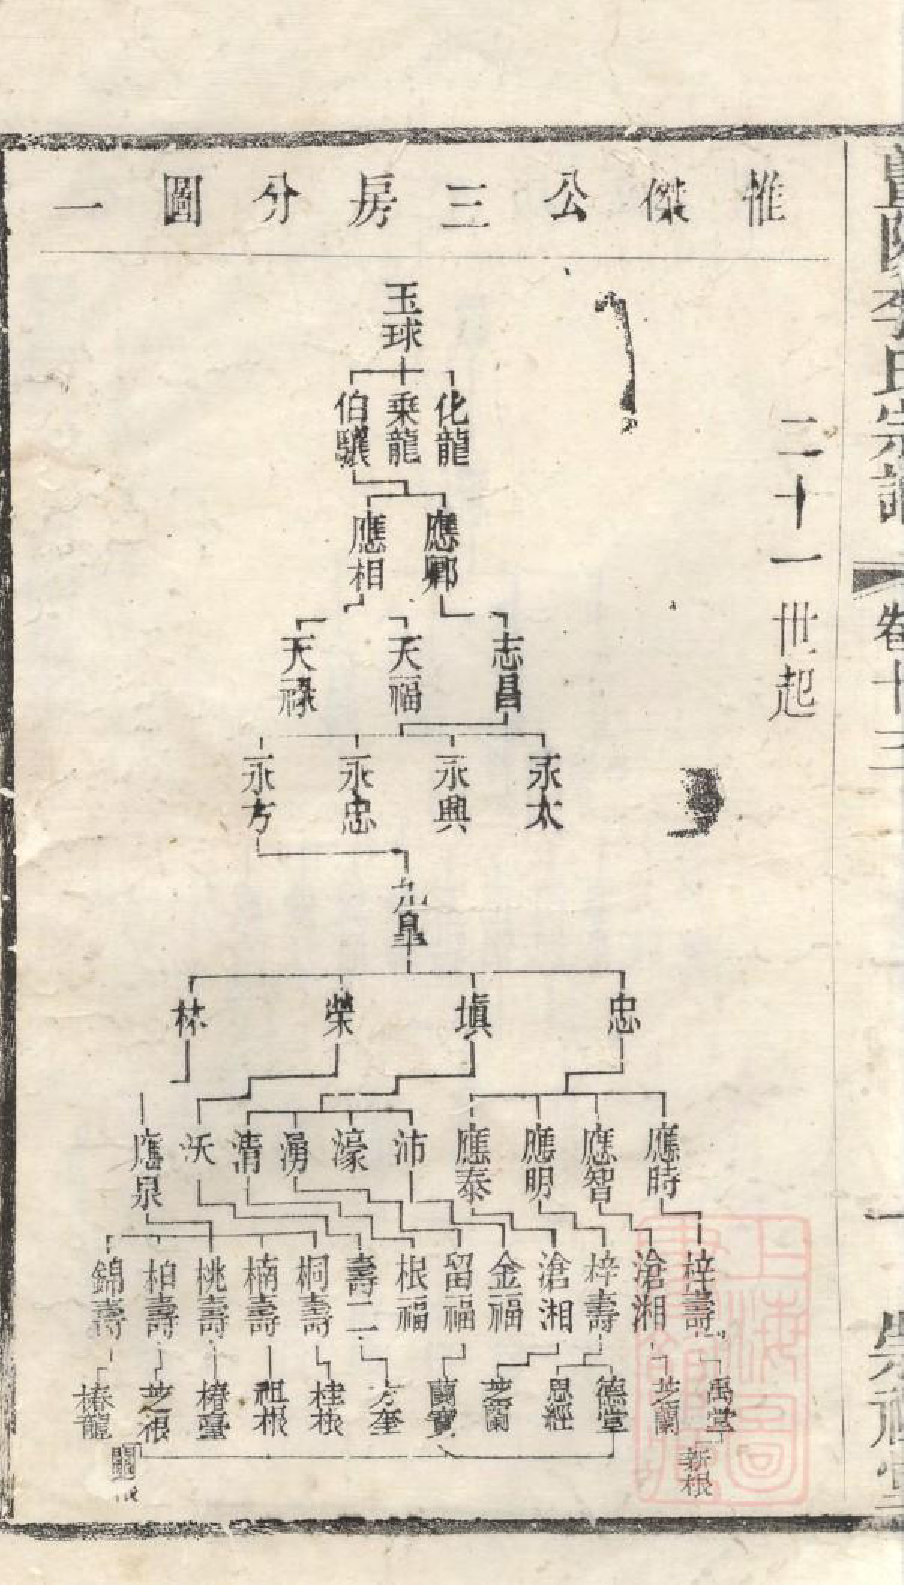 惟傑公三房分圖一
二十一世起
玉球
化龍 乗龍 伯驥
應卿 應相
志昌 天福 天祿
永太 永興 永忠 永方
九臯
忠 塡 榮 林
應時 應智 應明 應泰 沛 濠 湧 清 沃 應泉
梓壽 滄湘 梓壽 滄湘 金福 留福 根福 壽二 桐壽 楠壽 桃壽 柏壽 錦壽
禹堂 芝蘭 德堂 思經 芝蘭 蘭寶 方奎 桂根 祖根 椿臺 芝根 椿龍
新根
李氏宗譜
卷十三
一
上海圖書館藏